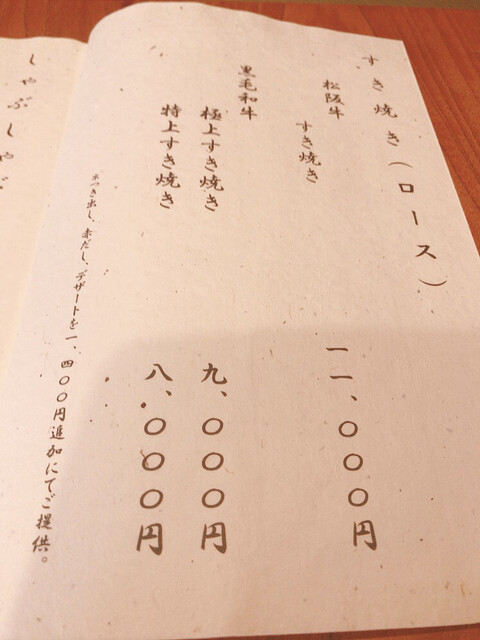 すき焼き（ロース）
松阪牛
すき焼き
一一、〇〇〇円
黒毛和牛
極上すき焼き
九、〇〇〇円
特上すき焼き
八、〇〇〇円
※つき出し、赤だし、デザートを一、四〇〇円追加にてご提供。
しゃぶしゃぶ